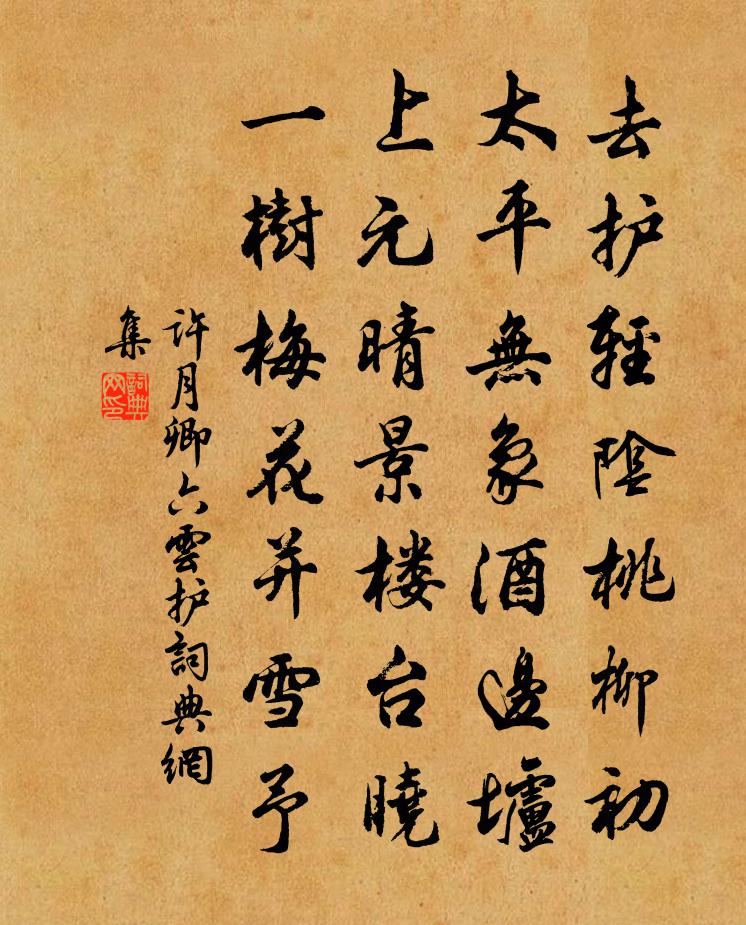 去护輕陰桃柳初
太平無象酒邊壚
上元晴景楼台曉
一樹梅花并雪予
許月卿六雲护詞典網
集
詞典网印